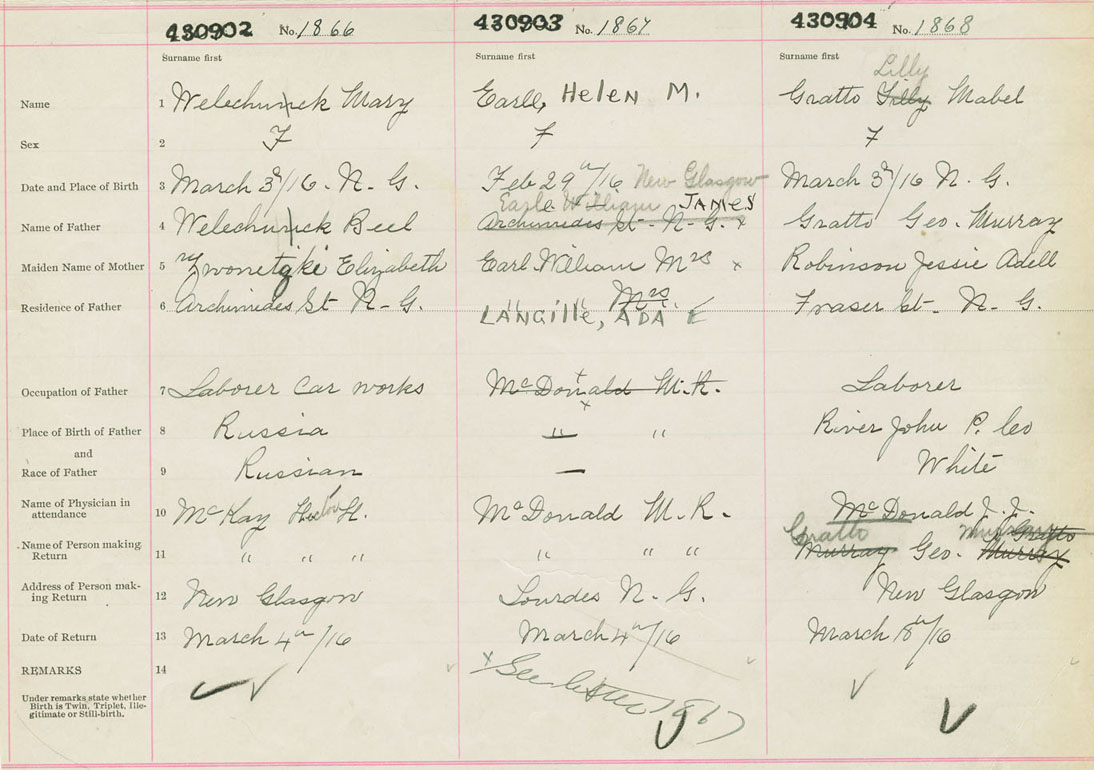 430902 No. 1866 430903 No. 1867 430904 No. 1868
Surname first Surname first Surname first
Lilly
Name 1 Welechunek Mary Earle, Helen M. Gratto Lilly Mabel
Sex 2 F F F
Date and Place of Birth 3 March 3rd/16. N. G. Feb 29th/16 New Glasgow March 3rd/16 N. G.
Earle William JAMES
Name of Father 4 Welechunick Beel Archimides St. N. G. x Gratto Geo. Murray
Maiden Name of Mother 5 Elizabeth Earl William Mrs x Robinson Jessie Adell
Mrs.
Residence of Father 6 Archimides St N. G. LANGille, ADA E Fraser St. N. G.
Occupation of Father 7 Laborer Car works McDonald M. R. Laborer
Place of Birth of Father 8 Russia " " River John P. Co
and
Race of Father 9 Russian — White
Name of Physician in
attendance 10 McKay Hector H. McDonald M. R. McDonald J. J.
Gratto Murray Gratto
Name of Person making
Return 11 " " " " " " Murray Geo. Murray
Address of Person mak-
ing Return 12 New Glasgow Lourdes N. G. New Glasgow
Date of Return 13 March 4th/16 March 4th/16 March 18th/16
REMARKS 14 x See letter 1867
Under remarks state whether
Birth is Twin, Triplet, Ille-
gitimate or Still-birth.